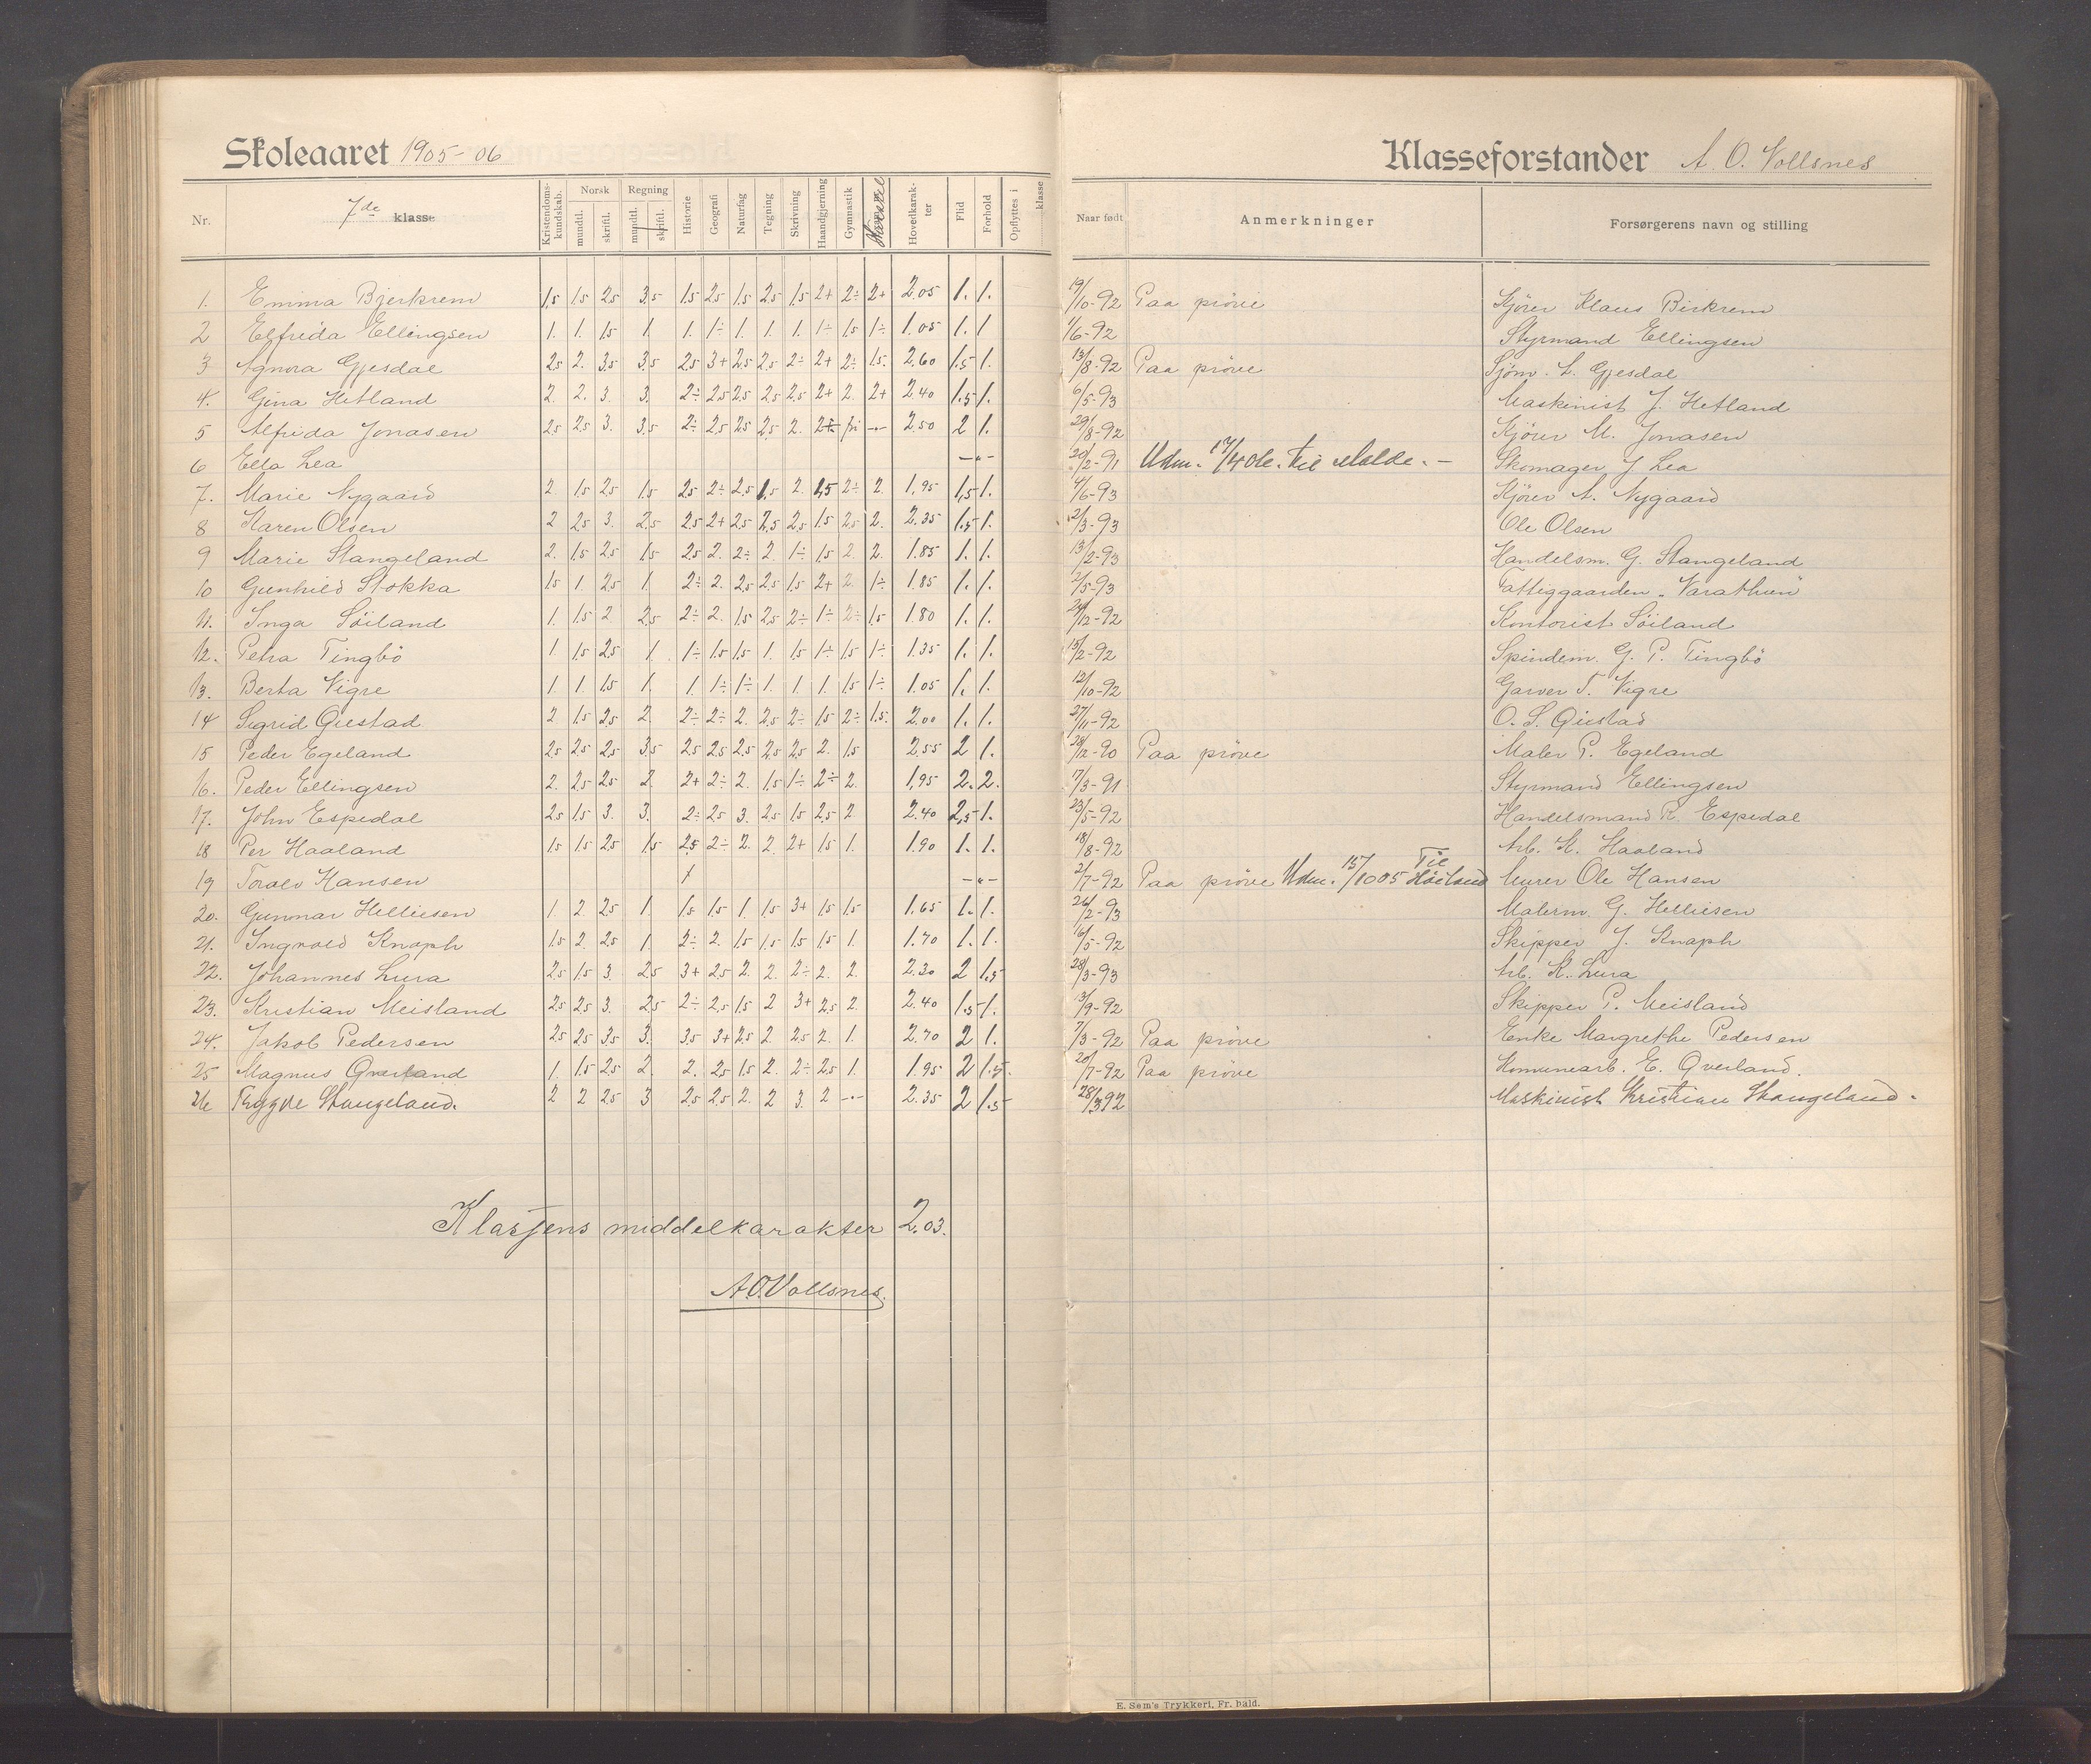 Skoleaaret 1905-06
Nr. 7de klasse Kristendoms-kundskab. Norsk mundtl. skriftl. Regning mundtl. skriftl. Historie Geografi Naturfag Tegning Skrivning Haandgjerning Gymnastik Hovedkarakter Flid Forhold Opflyttes i klasse
1. Emma Bjerkrem 1,5 1,5 2,5 3,5 1,5 2,5 1,5 2,5 1,5 2+ 2÷ 2+ 2.05 1. 1.
2 Elfrida Ellingsen 1. 1. 1,5 1. 1. 1÷ 1. 1. 1. 1÷ 1,5 1÷ 1.05 1. 1
3 Agnora Gjesdal 2,5 2. 3,5 3,5 2,5 3+ 2,5 2,5 2÷ 2+ 2÷ 1,5. 2.60 1.5 1.
4. Gina Hetland 2. 2. 3. 3. 2÷ 2,5 2,5 2,5 2,5 2+ 2. 2+ 2.40 1.5 1.
5 Alfrida Jonasen 2,5 2,5 3. 3,5 2÷ 2,5 2,5 2,5 2. 2+ fri -"- 2.50 2 1.
6 Ella Lea -"-
7. Marie Nygaard 2 1,5 2,5 1,5 2,5 2÷ 2,5 1,5 2. 1,5 2÷ 2. 1.95 1,5 1.
8 Karen Olsen 2 2,5 3. 2,5 2,5 2+ 2,5 2,5 2,5 1,5 2,5 2. 2.35 1.5 1.
9 Marie Stangeland 2. 1,5 2,5 1,5 2,5 2. 2÷ 2 1÷ 1,5 2. 2. 1.85 1. 1.
10 Gunhild Stokka 1,5 1. 2,5 1. 2÷ 2. 2,5 2,5 1,5 2+ 2. 1÷ 1.85 1. 1.
11. Inga Söiland 1. 1,5 2 2,5 2÷ 2. 1,5 2,5 2÷ 1÷ 2÷ 1,5 1.80 1. 1.
12. Petra Tingbö 1. 1,5 2,5 1. 1÷ 1,5 1,5 1. 1,5 1÷ 1,5 1÷ 1.35 1. 1.
13. Berta Vigre 1. 1. 1,5 1. 1. 1÷ 1÷ 1. 1. 1. 1,5 1÷ 1.05 1. 1.
14 Sigrid Qvistad 2 1,5 2,5 2. 2÷ 2÷ 2. 2,5 2÷ 1,5 2÷ 1.5. 2.00 1. 1.
15 Peder Egeland 2,5 2,5 2,5 3,5 2,5 2,5 2,5 2,5 2,5 2. 1,5 2.55 2 1.
16. Peder Ellingsen 2. 2,5 2,5 2. 2+ 2÷ 2. 1,5 1÷ 2÷ 2. 1,95 2. 2.
17. John Espedal 2,5 1,5 3. 3. 2÷ 2,5 3. 2,5 1,5 2,5 2 2.40 2,5 1.
18 Per Haaland 1,5 1,5 2,5 1,5 2,5 2÷ 2. 2. 2+ 1,5 1. 1.90 1. 1.
19 Toralv Hansen -"-
20. Gunnar Helliesen 1. 2 2,5 1. 1,5 1,5 1. 1,5 3+ 1,5 1,5 1.65 1. 1.
21. Ingvald Knaph 1,5 2 2,5 1. 2÷ 2. 1,5 1,5 1,5 1,5 1. 1.70 1. 1.
22. Johannes Lura 2,5 1,5 3. 2,5 3+ 2,5 2. 2. 2÷ 2. 2. 2.30 2 1.5
23. Kristian Meisland 2,5 2,5 3. 2,5 2÷ 2,5 1,5 2 3+ 2,5 2. 2.40 1.5 1.
24. Jakob Pedersen 2,5 2,5 3,5 3. 3,5 3+ 2,5 2 2,5 2. 1. 2.70 2 1.
25 Magnus Qverland 1. 1,5 2,5 2. 2. 2,5 1,5 2. 2÷ 2,5 1. 1.95 2 1.5.
26 Trygve Stangeland. 2 2 2,5 3 2,5 2,5 2. 2 3. 2 -"- 2.35 2 1.5
Klassens middelkarakter 2.03.
A.O. Vollsnes.
Klasseforstander A. O. Vollsnes
Naar født Anmerkninger Forsørgerens navn og stilling
19/10-92 Paa prøve Kjörer Klaus Birkrem
1/6-92 Styrmand Ellingsen
13/8-92 Paa prøve Sjöm. L. Gjesdal
6/5-93 Maskinist J. Hetland
29/8-92 Kjörer M. Jonasen
20/2-91 Udm. 17/4 06. til Molde. - Skomager J. Lea
4/6-93 Kjörer A. Nygaard
2/3-93 Ole Olsen
13/2-93 Handelsm. G. Stangeland
2/5-93 Fattiggaarden "Varathun"
24/12-92 Kontorist Söiland
15/2-92 Spindem. G. P. Tingbö
12/10-92 Garver T. Vigre
27/11-92 O. S. Qvistad
28/12-90 Paa prøve Maler P. Egeland
7/3-91 Styrmand Ellingsen
23/5-92 Handelsmand R. Espedal
18/8-92 Arb. K. Haaland
2/7-92 Paa prøve Udm. 15/10 05 Til Höiland Murer Ole Hansen
26/2-93 Malerm. G. Helliesen
16/5-92 Skipper J. Knaph
28/3-93 Arb. K. Lura
13/9-92 Skipper P. Meisland
7/3-92 Paa prøve Enke Margrethe Pedersen
20/7-92 Paa prøve Komunearb. E. Qverland.
28/3 92 Maskinist Kristian Stangeland.
E. Sem's Trykkeri, Fr. hald.